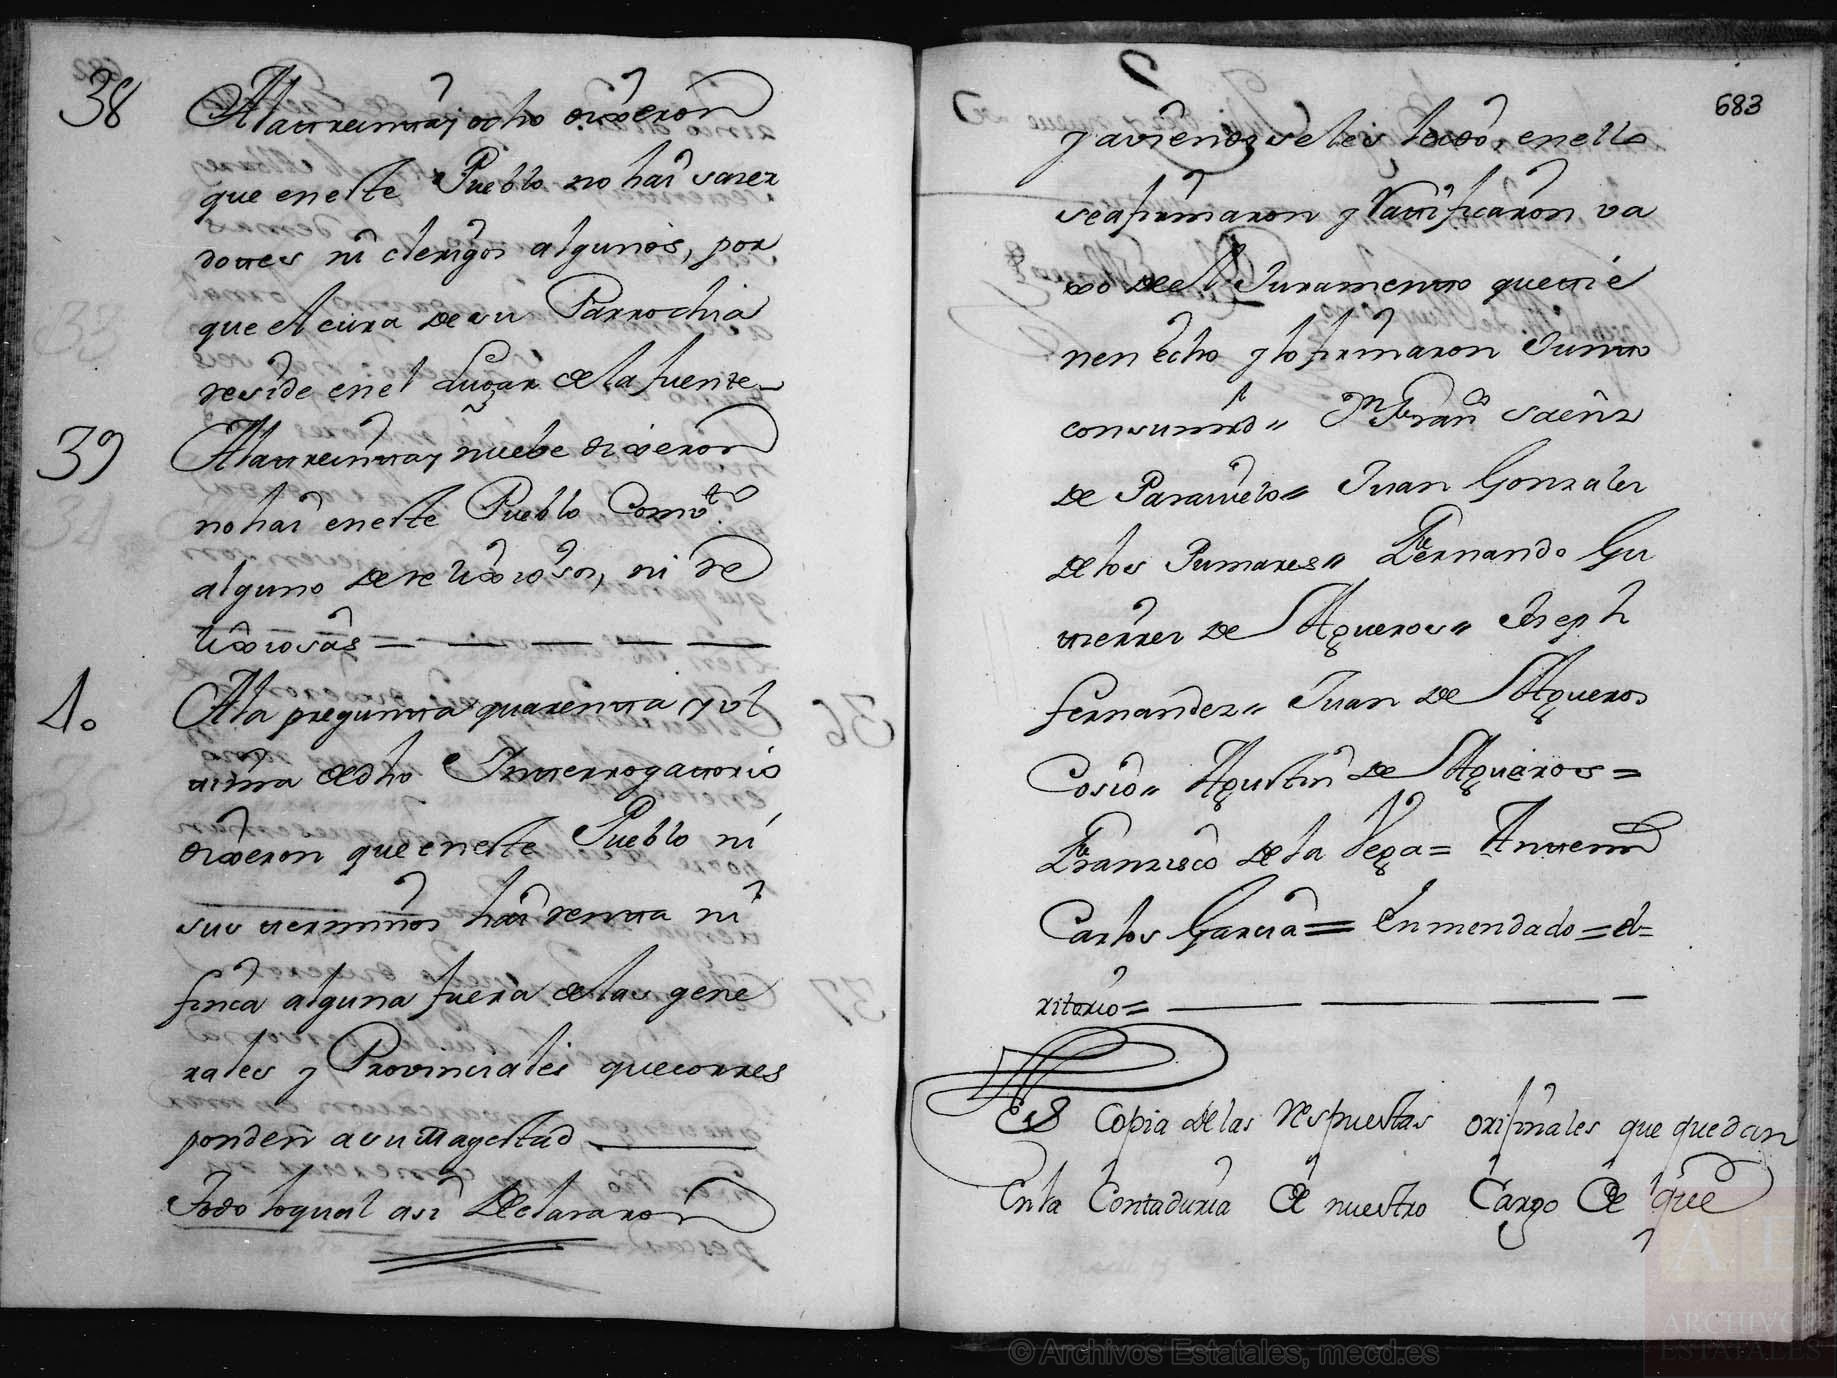 38
A la treinta y ocho dixeron
que en este Pueblo no hai sazer
dotes ni clerigos algunos, por
que el cura de su Parrochia
reside en el Lugar de la fuente
39
A la treinta y nuebe dixeron
no hai en este Pueblo Comb.to
alguno de relixiosos, ni re
lixiosas =
40
A la pregunta quarenta y ul
tima de dho Interrogatorio
dixeron que en este Pueblo ni
sus terminos hai renta ni
finca alguna fuera de las gene
rales y Provinciales que corres
ponden a su Magestad
Todo lo qual asi Declararon
683
y aviendoseles leido, en ello
se afirmaron y Ratificaron va
xo de el Juramento que tie
nen echo y lo firmaron Junto
con su mrd = Dn Fran.co Saenz
de Parayuelo = Juan Gonzalez
de los Pumares = Fernando Gu
tierrez de Agueros = Joseph
fernandez = Juan de Agueros
Cosio = Agustin de Agueros =
Franzisco de la Vega = Ante mi
Carlos Garcia = Enmendado = el =
ritorio =
Es Copia de las respuestas orijinales que quedan
En la Contaduria de nuestro Cargo de que
© Archivos Estatales, mecd.es
AE
ARCHIVOS
ESTATALES